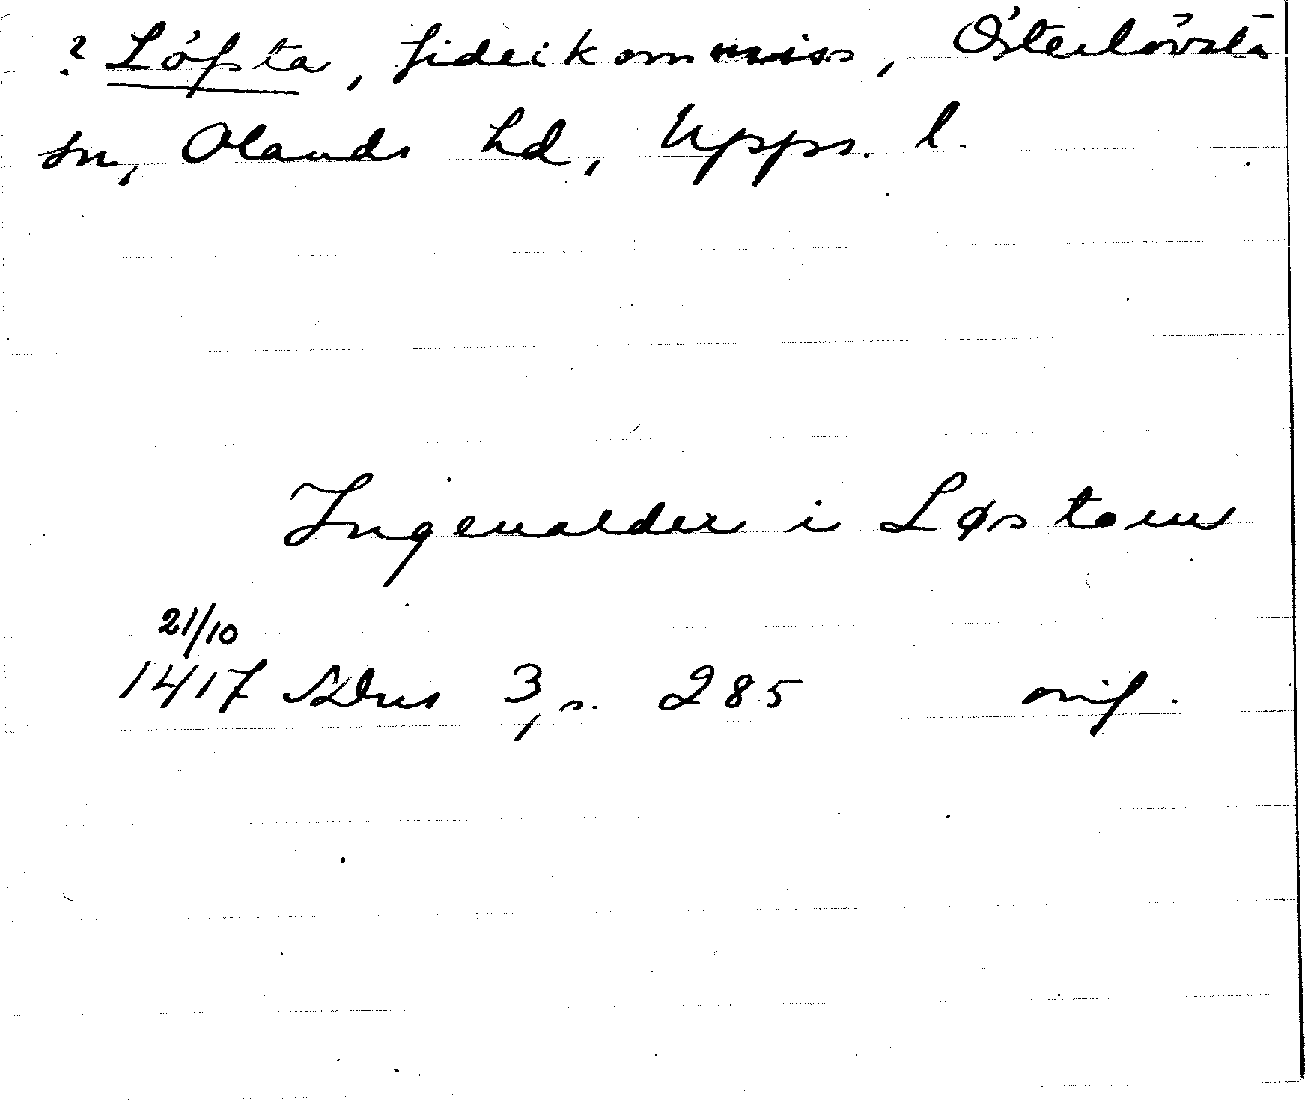 ? Löfsta, fideikommiss, Österlövsta
sn, Olands hd, Upps. l.
Ingeualder i Løstom
21/10
1417 SDns 3, s. 285 orig.